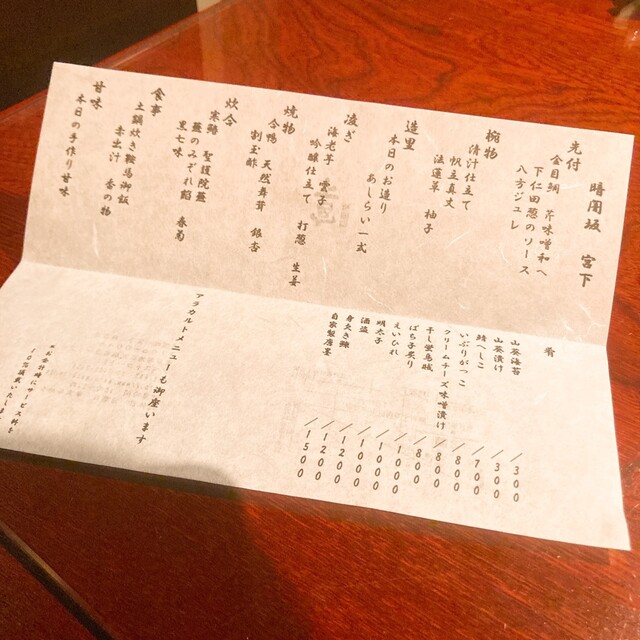 暗闇坂 宮下
先付
金目鯛 芹味噌和へ
下仁田葱のソース
八方ジュレ
椀物
清汁仕立て
帆立真丈
法蓮草 柚子
造里
本日のお造り
あしらい一式
凌ぎ
海老芋 雲子
吟醸仕立て 打葱 生姜
焼物
合鴨 天然舞茸 銀杏
割玉酢
炊合
寒鰤 聖護院蕪
蕪のみぞれ餡 春菊
黒一味
食事
土鍋炊き鞍馬御飯
赤出汁 香の物
甘味
本日の手作り甘味
肴
山葵海苔 /300
山葵漬け /300
/700
いぶりがっこ /800
クリームチーズ味噌漬け /800
干し芋 /800
ばちこ炙り /1000
えいひれ /1000
明太子 /1000
酒盗 /1200
/1200
自家製唐墨 /1500
アラカルトメニューも御座います